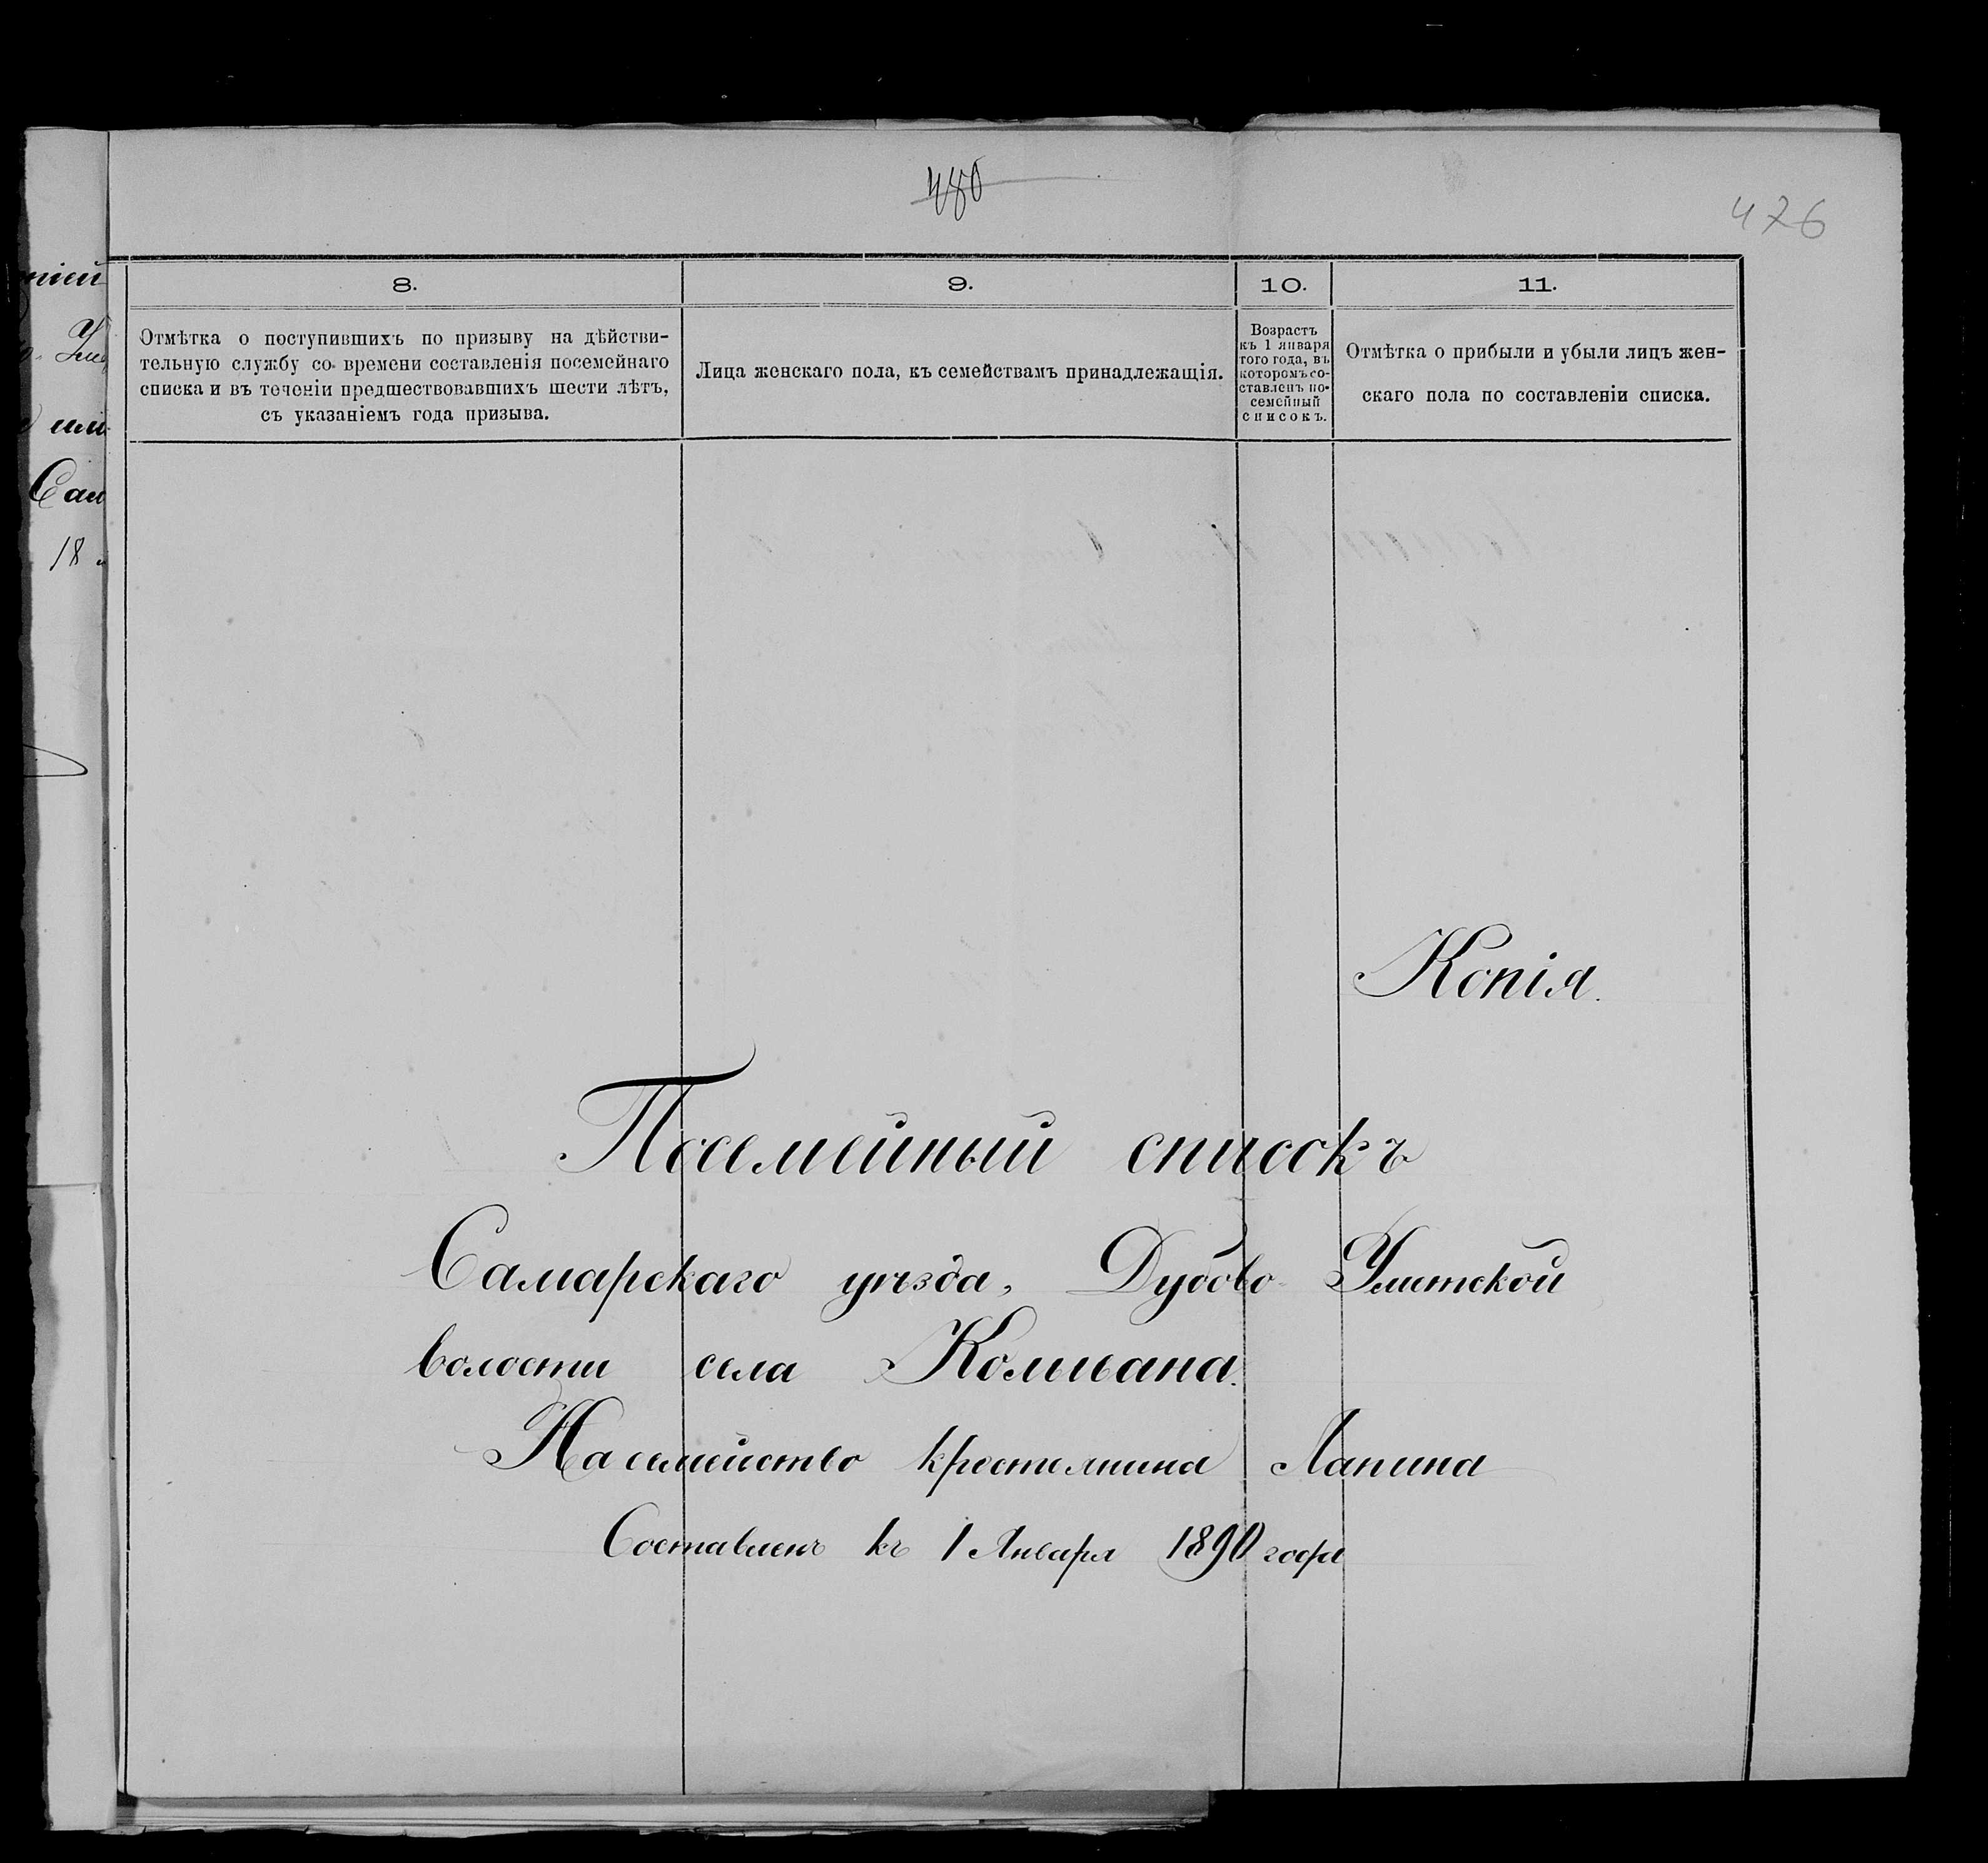 480
476
8.
Отмѣтка о поступившихъ по призыву на дѣйстви-
тельную службу со времени составленія посемейнаго
списка и въ теченіи предшествовавшихъ шести лѣтъ,
съ указаніемъ года призыва.
9.
Лица женскаго пола, къ семействамъ принадлежащія.
10.
Возрастъ
къ 1 января
того года, въ
которомъ со-
ставленъ по-
семейный
списокъ.
11.
Отмѣтка о прибыли и убыли лицъ жен-
скаго пола по составленіи списка.
Сам
18
Копія.
Посемейный списокъ
Самарскаго уѣзда, Дубово-Уметской
волости села Колывана.
На семейство крестьянина Лапина
Составленъ къ 1 Января 1890 года